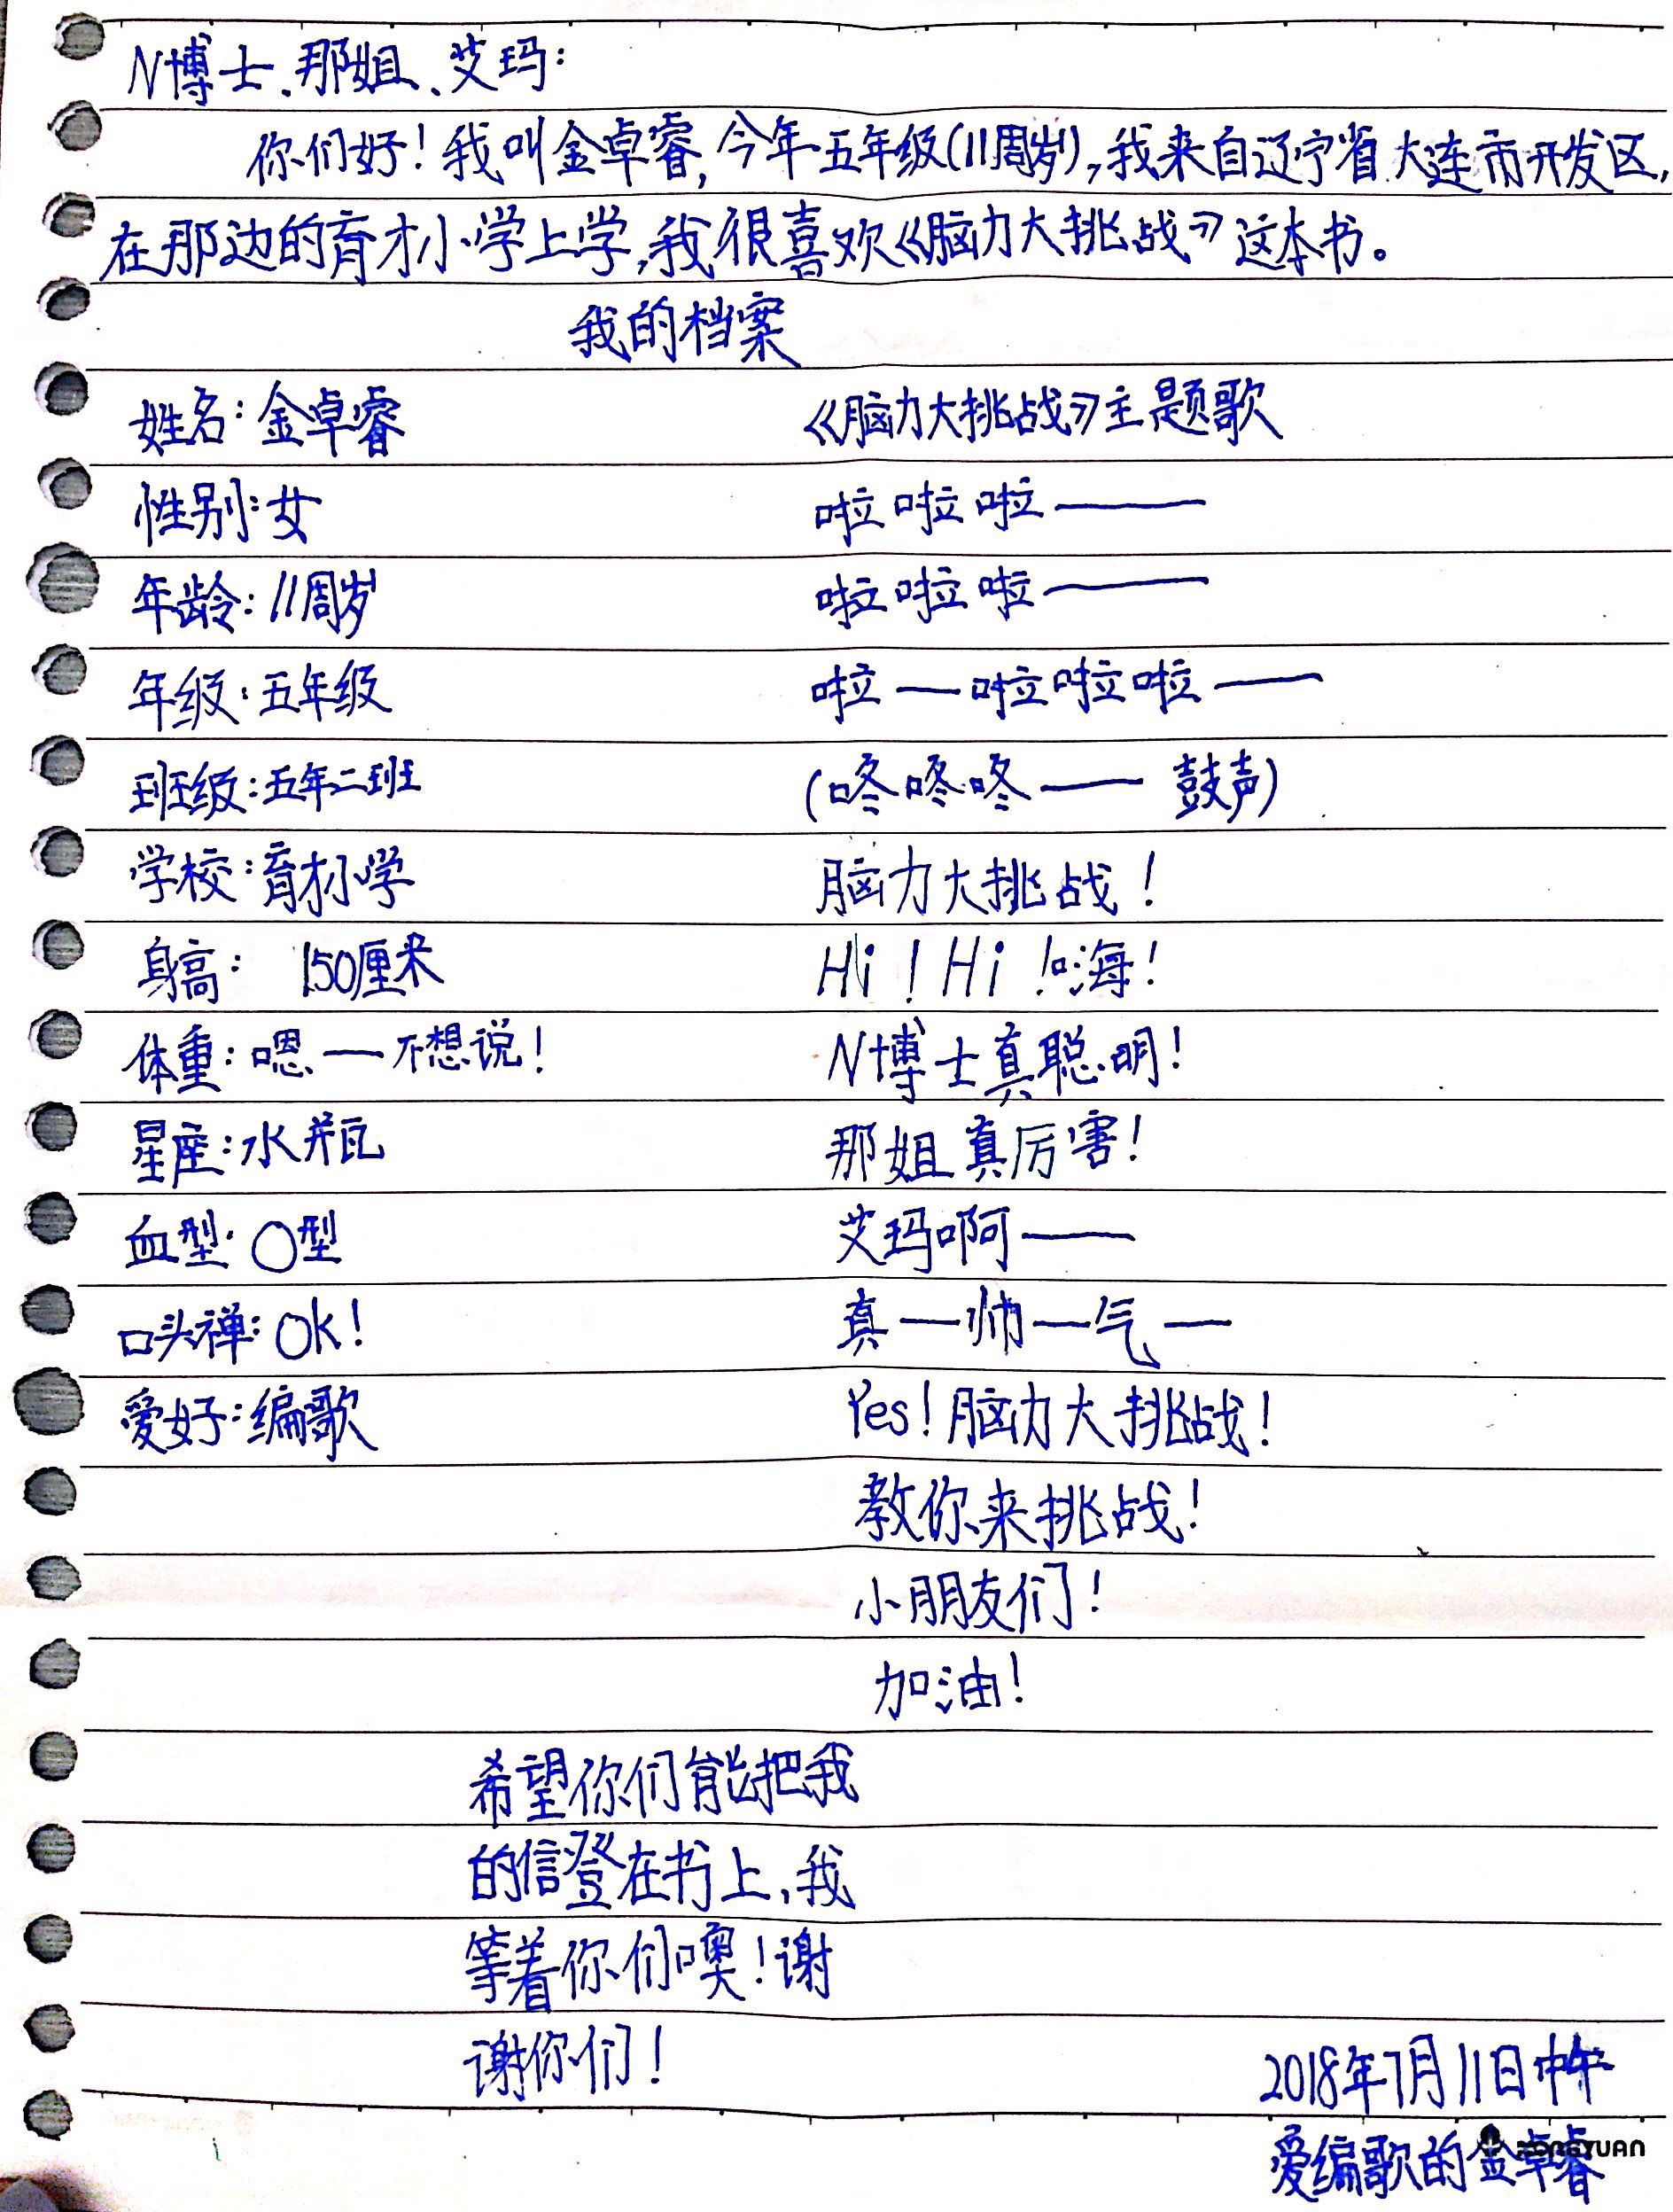 N博士、那姐、艾玛：
你们好！我叫金卓睿，今年五年级(11周岁)，我来自辽宁省大连市开发区，
在那边的育才小学上学，我很喜欢《脑力大挑战》这本书。
我的档案
姓名：金卓睿
性别：女
年龄：11周岁
年级：五年级
班级：五年二班
学校：育才小学
身高： 150厘米
体重：嗯——不想说！
星座：水瓶
血型：O型
口头禅：OK！
爱好：编歌
《脑力大挑战》主题歌
啦啦啦——
啦啦啦——
啦—啦啦啦——
(咚咚咚—— 鼓声)
脑力大挑战！
Hi！Hi！嗨！
N博士真聪明！
那姐真厉害！
艾玛啊——
真—帅—气—
Yes！脑力大挑战！
教你来挑战！
小朋友们！
加油！
希望你们能把我
的信登在书上，我
等着你们噢！谢
谢你们！
2018年7月11日中午
爱编歌的金卓睿